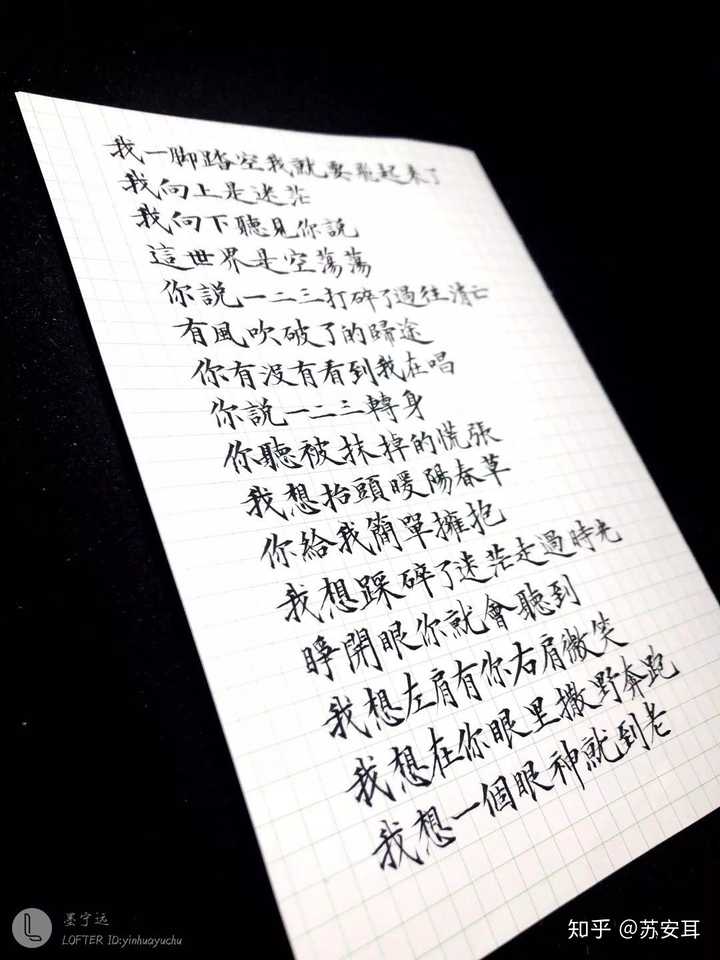 我一脚踏空我就要飛起来了
我向上是迷茫
我向下聽見你說
這世界是空蕩蕩
你說一二三打碎了過往消亡
有風吹破了的歸途
你有没有看到我在唱
你說一二三轉身
你聽被抹掉的慌張
我想抬頭暖陽春草
你給我簡單擁抱
我想踩碎了迷茫走過時光
睜開眼你就會聽到
我想左肩有你右肩微笑
我想在你眼里撒野奔跑
我想一個眼神就到老
墨宁远
LOFTER ID:yinhuayuchu
知乎 @苏安耳